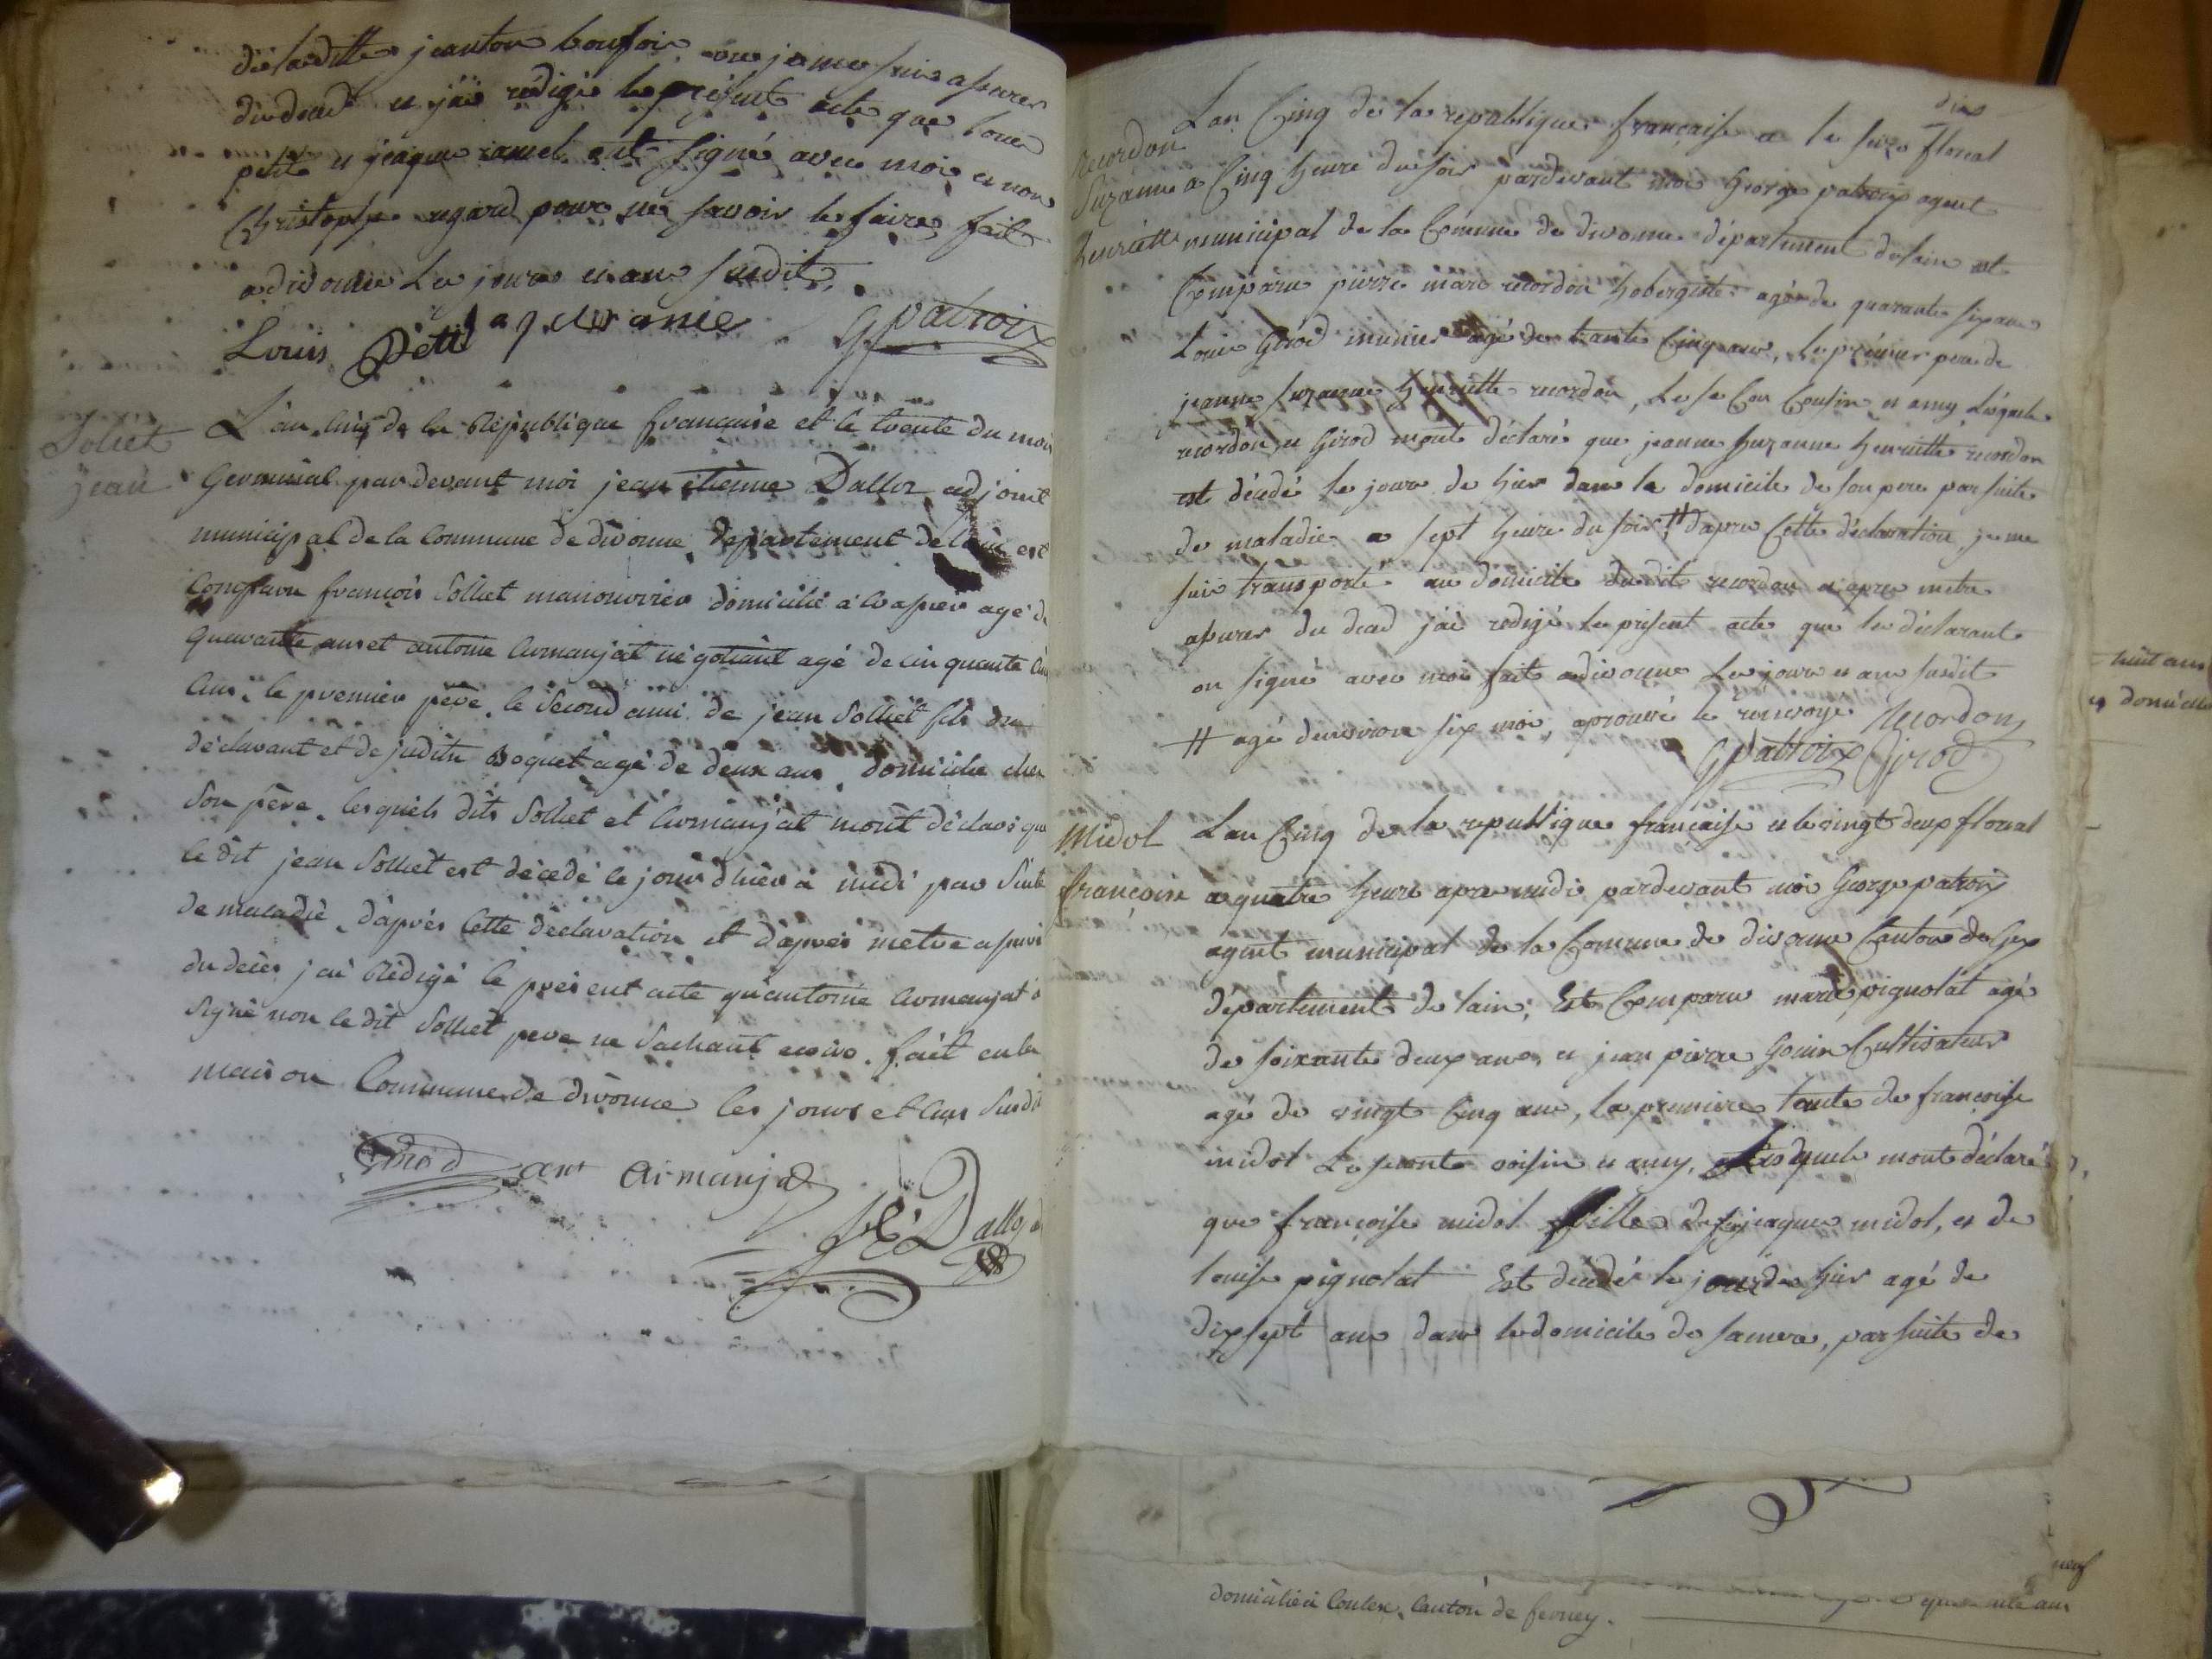 de laditte jeanton bousson ou je me suis assurer
du décé et jai rédigé le présent acte que louis
petit et jeaque ramel ont signé avec moi et non
Christophe regard pour ne savoir le faire, fait
a divonne Les jours et an susdits
Louis Petit GPatroix
Solliet
jean
L'an cinq de la République francaise et le trente du mois
Germinal par devant moi jean étienne Dalloz adjoint
municipal de la Commune de divonne, departement de lain est
Comparu francois Solliet manouvrier domicilié à crassier agé de
quarante ans et antoine Armanjat négotiant agé de cinquante
ans, le premier père, le Second ami de jean Solliet fils du
déclarant et de judith Boquet agé de deux ans, domicilié chez
Son père, lesquels dits Solliet et Armanjat m'ont déclaré que
le dit jean Solliet est décédé le jour d'hier à midi par Suite
de maladie, d'après Cette déclaration et d'après m'etre assuré
du deces j'ai Rédigé le présent acte qu'antoine Armanjat a
Signé non le dit Solliet pere ne Sachant écrire. fait en la
maison Commune de divonne les jours et ans Susdits
Girod ant Armanja
J E Dalloz
dix
Recordon
Suzanne
henriette
Lan Cinq de la republique française et le seize floreal
a Cinq heure du soir pardevant moi George patroix agent
municipal de la Comune de divonne département de lain est
Comparu pierre marc recordon hobergiste agé de quarante six ans
Louis Girod munier agé de trante Cinq ans, le prémier pere de
jeanne suzanne henriette recordon, Le se Con Cousin et amy Lesquels
recordon et Girod mont déclaré que jeanne suzanne henriette recordon
est décédé le jour de hier dans le domicile de son pere par suite
de maladie a sept heure du soir # dapres Cette déclaration, je me
suis transporté au domicile du dit recordon et apres metre
assurer du décé jai redigé le présent acte que les déclarant
on signé avec moi fait a divonne Les jours et an susdit
# agé denviron six moi, aprouvé le renvoye Recordon
GPatroix Girod
Midol
françoise
Lan Cinq de la republique française et le vingt deux floreal
a quatre heure apre midi pardevant moi George patroix
agent municipal de la Comune de divonne Canton de Gex
departement de lain, Est Comparu marie pignolat agé
de soixante deux ans, et jean pierre Gonin Cultivateur
agé de vingt Cinq ans, la premiere tante de françoise
midol Le second voisin et amy, Lesquels mont déclaré
que françoise midol fille de feu jeaque midol, et de
louise pignolat Est décédé le jour de hier agé de
dix sept ans dans le domicile de sa mere, par suite de
huit ans
et domicilié
neuf
domicilié à Coulex, Canton de ferney. quarante ans